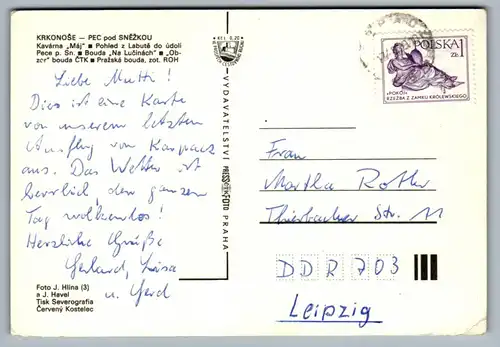 KRKONOŠE – PEC pod SNĚŽKOU
Kavárna „Máj" ▪ Pohled z Labutě do údolí
Pece p. Sn. ▪ Bouda „Na Lučinách" ▪ „Ob-
zor" bouda ČTK ▪ Pražská bouda, zot. ROH
Liebe Mutti!
Dies ist eine Karte
von unserem letzten
Ausflug von Karpacz
aus. Das Wetter ist
herrlich, den ganzen
Tag wolkenlos!
Herzliche Grüße
Gerhard, Luisa
u. Gerd
Foto J. Hlína (3)
a J. Havel
Tisk Severografia
Červený Kostelec
VYDAVATELSTVÍ PRESSFOTO PRAHA
POLSKA 1
ZŁ
«POKÓJ»
RZEŹBA Z ZAMKU KRÓLEWSKIEGO
Frau
Martha Rother
Str. 11
DDR 703
Leipzig